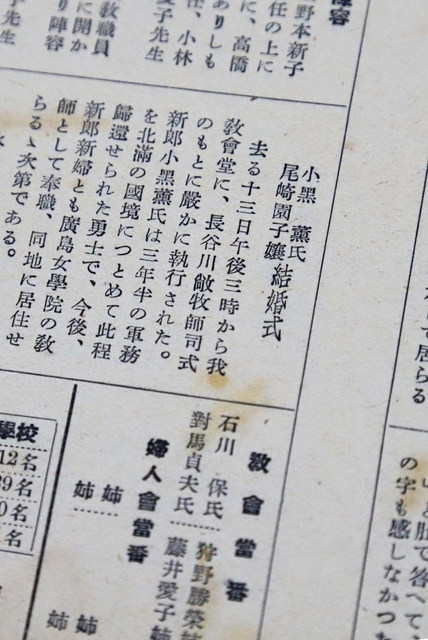 陣容
野本新子
任の上に
に、高橋
ありしも
任、小林
愛子先生
教職員
に開か
り陣容
子先生
小黑　薰氏
尾崎園子孃
結婚式
去る十三日午後三時から我
敎會堂に、長谷川敞牧師司式
のもとに嚴かに執行された。
新郎小黑薰氏は三年半の軍務
を北滿の國境につとめて此程
歸還せられた勇士で、今後、
新郎新婦とも廣島女學院の敎
師として奉職、同地に居住せ
らるゝ次第である。
敎會當番
石川　保氏
狩野勝榮姉
對馬貞夫氏
藤井愛子姉
婦人會當番
姉
姉
姉
姉
學校
12名
39名
0名
名
て居らる
と肚で答へて、
の字も感じなかつた